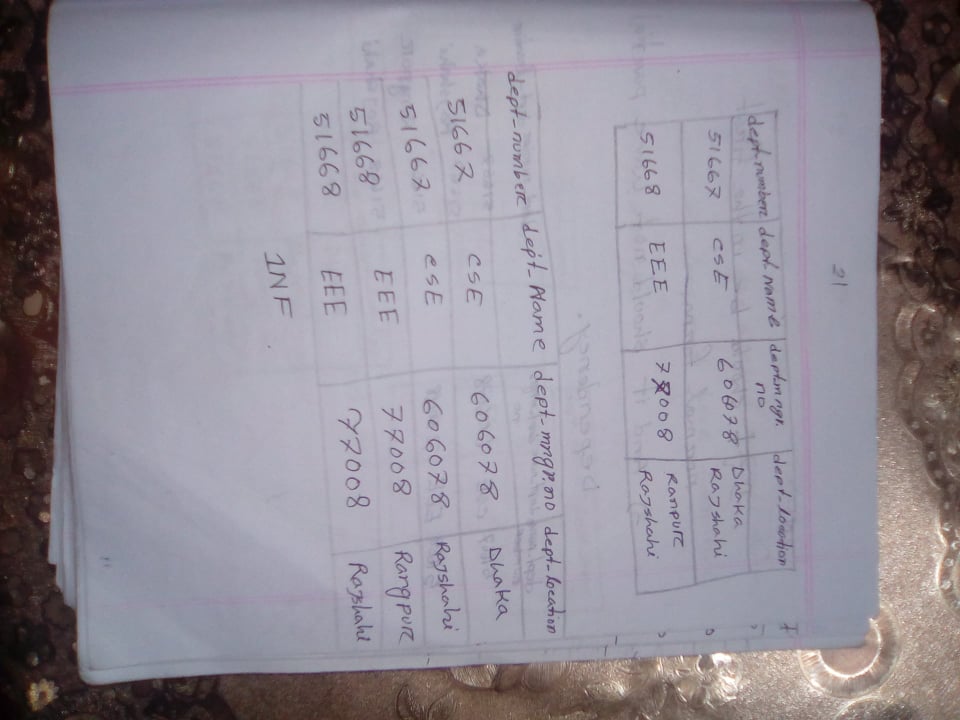 21
dept-number dept-Name dept.mngr. no dept-location
51667 CSE 606078 Dhaka
Rajshahi
51668 EEE 77008 Ranpur
Rajshahi
dept-number dept-Name dept-mngr.no dept-location
51667 CSE 606078 Dhaka
51667 CSE 606078 Rajshahi
51668 EEE 77008 Rangpur
51668 EEE 77008 Rajshahi
1NF